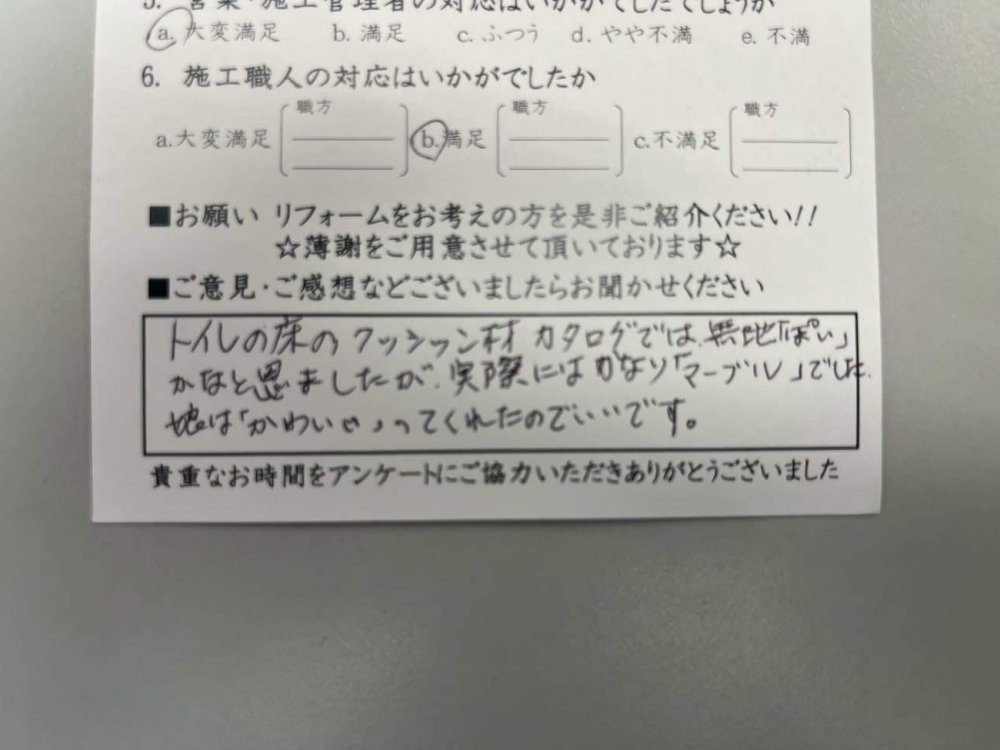 5. 営業・施工管理者の対応はいかがでしたでしょうか
a. 大変満足 b. 満足 c. ふつう d. やや不満 e. 不満
6. 施工職人の対応はいかがでしたか
a.大変満足 職方 b.満足 職方 c.不満足 職方
■お願い リフォームをお考えの方を是非ご紹介ください!!
☆薄謝をご用意させて頂いております☆
■ご意見・ご感想などございましたらお聞かせください
トイレの床のクッション材 カタログでは、無地「ぽい」
かなと思ましたが、実際にはかなり「マーブル」でした。
娘は「かわいい」ってくれたのでいいです。
貴重なお時間をアンケートにご協力いただきありがとうございました